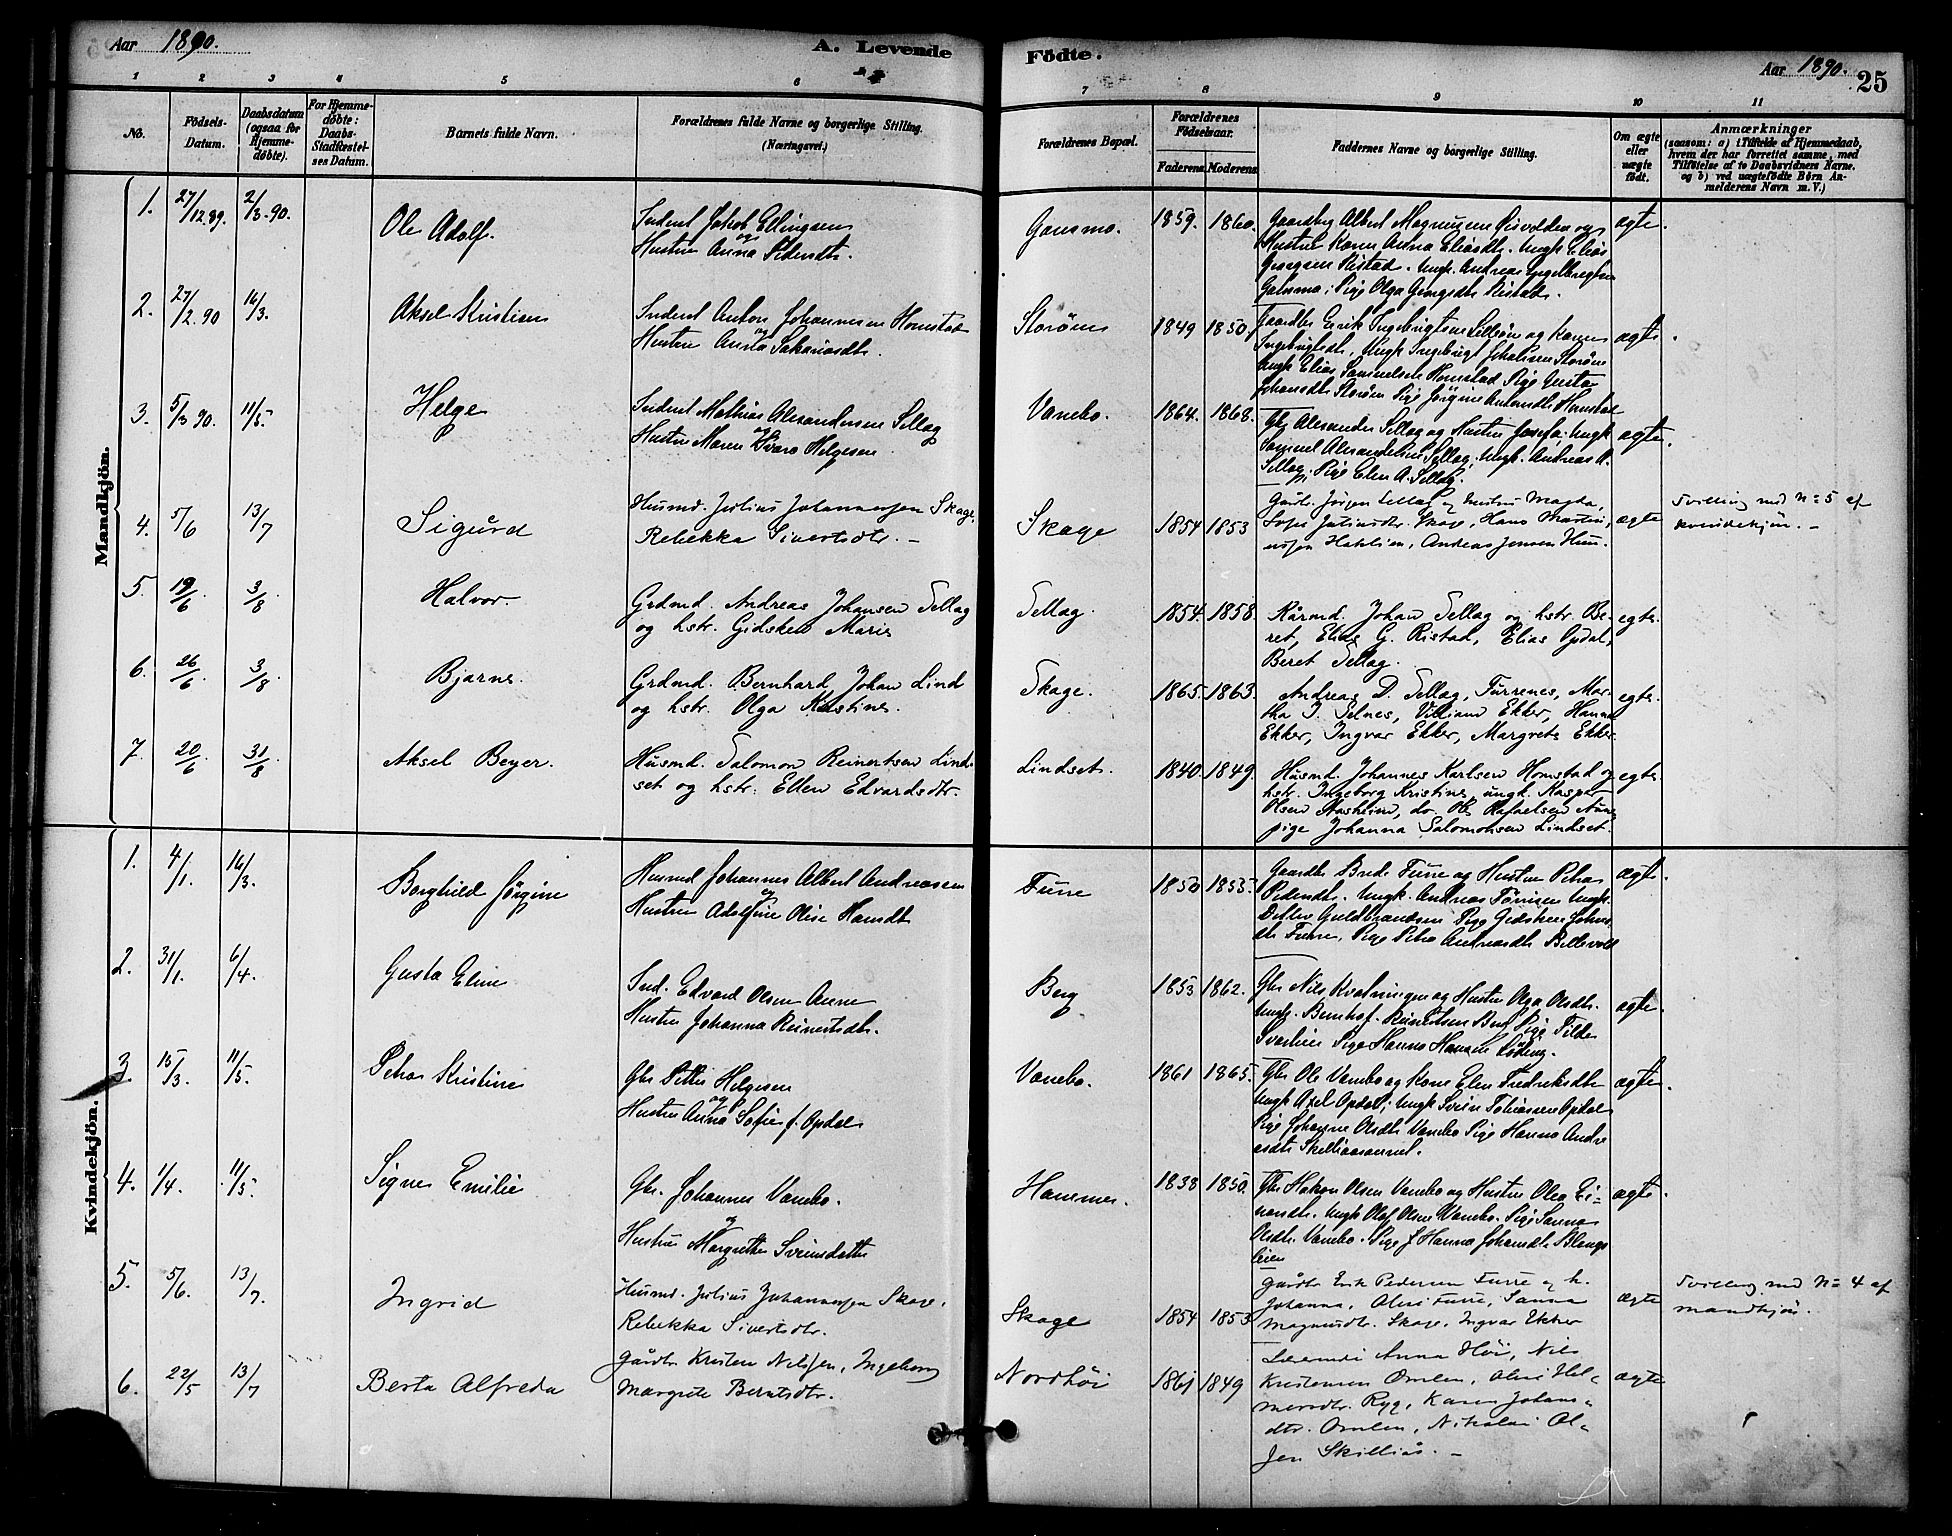 Aar 1890.
A. Levende
Födte.
Aar 1890.
25
1 2 3 4 5 6 7 8 9 10 11
No.
Födsels-Datum.
Daabsdatum (ogsaa for Hjemme-døbte).
For Hjemme-døbte: Daabs-Stadfæstelses Datum.
Barnets fulde Navn.
Forældrenes fulde Navne og borgerlige Stilling. (Næringsvei.)
Forældrenes Bopæl.
Forældrenes Födselsaar.
Faderens. Moderens.
Faddernes Navne og borgerlige Stilling.
Om ægte eller uægte født.
Anmærkninger
(saasom: a) i Tilfælde af Hjemmedaab, hvem der har forrettet samme, med Tilföielse af to Daabsvidners Navne, og b) ved uægtefødte Börn Anmelderens Navn m. V.)
Mandkjön.
1. 27/12.89. 2/3.90. Ole Adolf. Inderst Jakob Ellingsen
og
Hustru Anna Pedersdtr. Gansmo. 1859. 1860.
Gaardbr Albert Magnussen Risvolden og
Hustru Karen Anna Eliasdtr. Ungk Elias
Georgsen Ristad. Ungk. Andreas Ingelbregtsen
Gansmo; Pige Olga Georgsdtr Ristad.
ægte.
2. 27/2.90 16/3. Aksel Kristian Inderst Anton Johannesen Homstad
og
Hustru Anna Sakariasdtr. Storøen 1849 1850.
Gaardbr Erik Ingebrigtsen Lilleøen og Karen
Ingebrigtsdtr, Ungk Ingebrigt Johansen Storøen
Ungk Elias Samuelsen Homstad Pige Gusta
Johansdtr Storøen Pige Jørgine Antonsdtr Homstad
ægte.
3. 5/3 90. 11/5. Helge Inderst Mathias Alexandersen Sellæg
og
Hustru Maren Kvaro Helgesen. Vanebo. 1864. 1868.
Gbr Alexander Sellæg og Hustru Josefa; Ungk
Samuel Alexandersen Sellæg; Ungk. Andreas A.
Sellæg; Pige Elen A. Sellæg.
ægte.
4. 5/6 13/7 Sigurd Husmd. Julius Johannessen Skage,
Rebekka Sivertsdtr. – Skage 1854 1853
Gårdbr. Jørgen Sellæg og hustru Magda,
Sofie Juliusdtr. Skage, Hans Martin,
Andreas Jensen Hun.
ægte Tvilling med N=5 af
kvindekjøn. –
5. 19/6. 3/8. Halvor. Grdmd. Andreas Johansen Sellæg
og hstr. Gidsken Marie Sellæg. 1854. 1858.
Kårmd. Johan Sellæg og hstr. Be-
ret, Elias G. Ristad, Elias Opdal,
Beret Sellæg.
egte.
6. 26/6 3/8 Bjarne. Grdmd. Bernhard Johan Lind
og hstr. Olga Kristine. Skage. 1865. 1863.
Andreas D. Sellæg, Furrenes, Mar-
tha J. Selnes, Villiam Ekker, Hanna
Ekker, Ingvar Ekker, Margrete Ekker
egte.
7. 20/6 31/8 Aksel Beyer. Husmd. Salomon Reinertsen Lind-
set og hstr. Ellen Edvardsdtr. Lindset. 1840. 1849.
Husmd. Johannes Karlsen Homstad og
hstr. Ingeborg Kristine, ungk. Kasper
Olsen Aasheim, do. Ole Rafaelsen Aune,
pige Johanna Salomonsen Lindset.
egte.
Kvindekjön.
1. 4/1. 16/3. Borghild Jørgine Husmd Johannes Albert Andreasen
og
Hustru Adolfine Olise Hansdtr Furre 1850 1855.
Gaardbr Brede Furre og Hustru Petra
Pedersdtr. Ungk. Andreas Tørrissen Ungk.
Detlev Guldbrandsen Pige Gidsken Johns-
dtr Furre, Pige Petra Andreasdtr Bellsvold
ægte.
2. 31/1. 6/4. Gusta Eline Ind. Edvard Olsen Aune
Hustru Johanna Reinertsdtr. Berg 1853 1862.
Gbr Nils Kvatningen og Hustru Olga Olsdtr.
Ungk. Bernhof. Reinertsen Berg Pige Tilda
Svarlien Pige Hanna Hansen Løding.
ægte.
3. 15/3. 11/5. Petra Kristine Gbr Petter Helgesen
og
Hustru Anna Sofie f. Opdal Vanebo. 1861 1865.
Gbr Ole Vanebo og Kone Elen Fredriksdtr
Ungk Axel Opdal; Ungk Svein Tobiassen Opdal
Pige Johanne Olsdtr Vanebo Pige Hanna Andre
asdtr
ægte.
4. 1/4. 11/5. Signe Emilie Gbr. Johannes Vanebo.
og
Hustru Margrethe Sveinsdatter Hammer. 1838 1850.
Gbr Hakon Olsen Vanebo og Hustru Olea Ei-
narsdtr. Ungk Olaf Olsen Vanebo. Pige Sanna
Olsdtr. Vanebo. Pige J Hanna Johansdtr Blengs
leien
ægte.
5. 5/6. 13/7. Ingrid Husmd. Julius Johannessen Skage,
Rebekka Sivertsdtr. Skage 1854 1853
Gårdbr Erik Pedersen Furre og h.
Johanna, Oline Furre, Sanna
Magnusdtr. Skage, Ingvar Ekker
ægte Tvilling med N=4 af
mandkjøn.
6. 22/5 13/7 Berta Alfreda Gårdbr Kristen Nilssen, Ingeborg
Margrete Berntsdtr. Nordhøi 1861 1849
Anna Høi, Nils
Kristensen Omlen, Oline Hel-
mersdtr. Ryg, Karen Johans-
dtr. Omlen, Nikolai Ol-
sen Skilliås. –
ægte